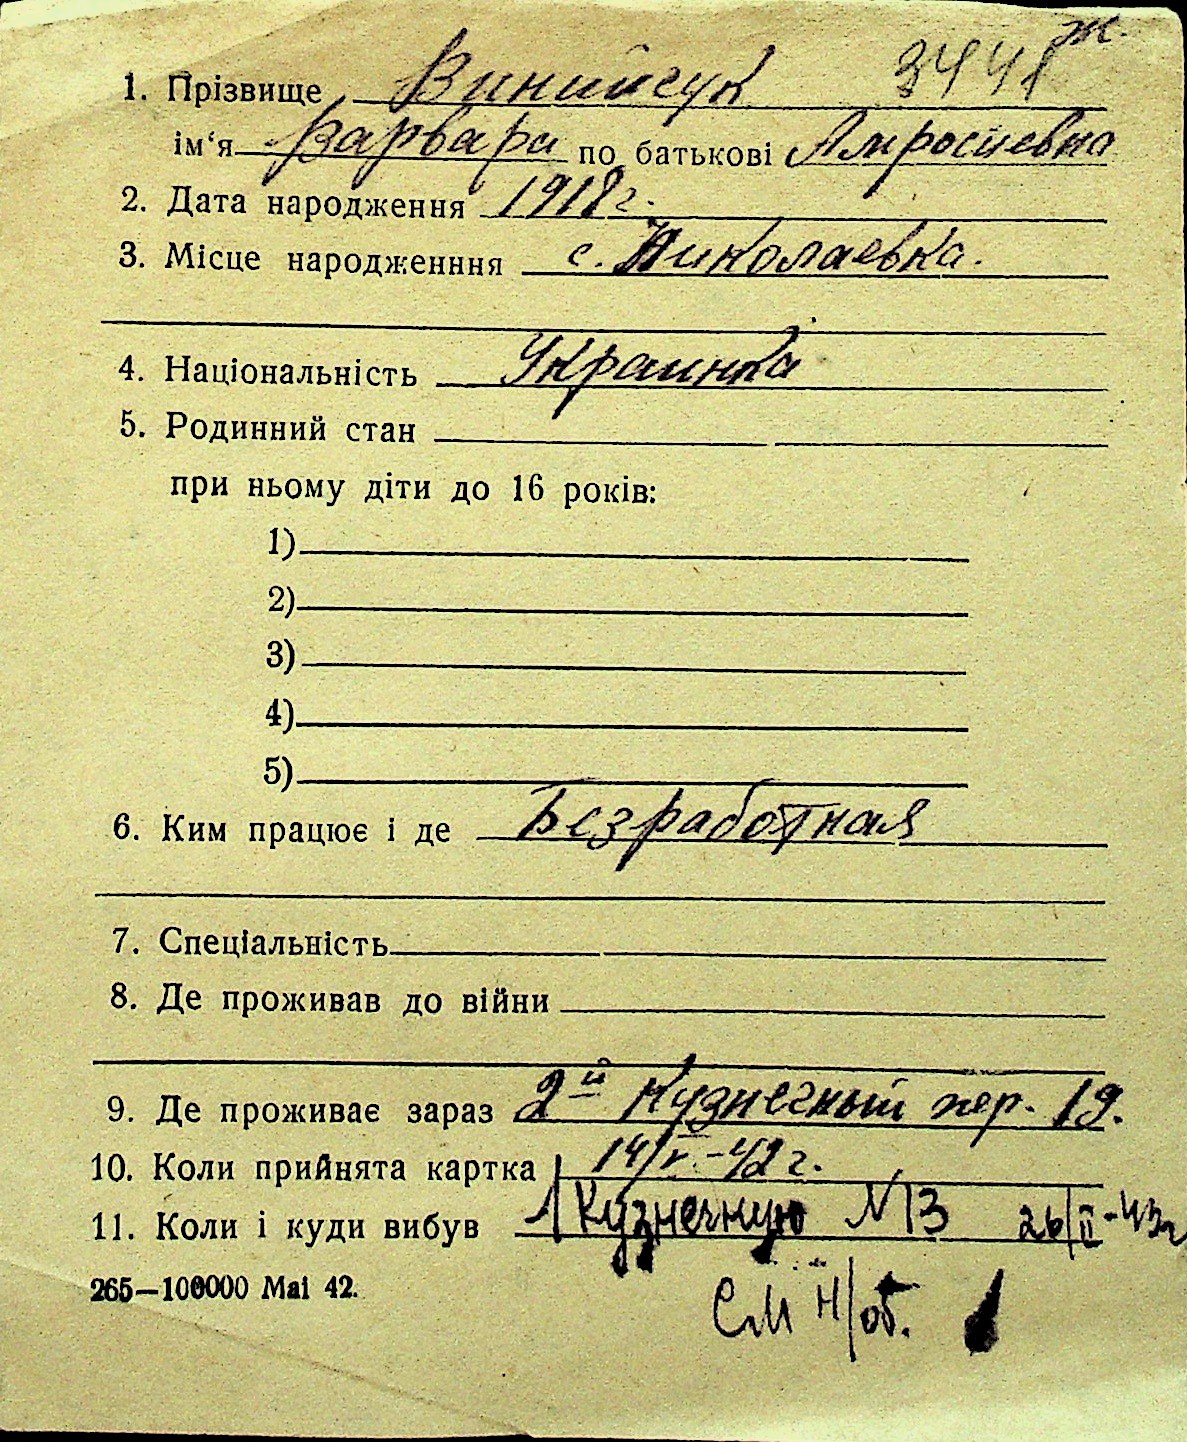 ж.
1. Прізвище Винийчук 3441
ім‘я Варвара по батькові Амросиевна
2. Дата народження 1918 г.
3. Місце народженння с. Николаевка.
4. Національність Украинка
5. Родинний стан
при ньому діти до 16 років:
1)
2)
3)
4)
5)
6. Ким працює і де Безработная
7. Спеціальність
8. Де проживав до війни
9. Де проживає зараз 2й Кузнечный пер. 19.
10. Коли прийнята картка 14/V-42 г.
11. Коли і куди вибув Кузнечную №13 26/II-43г
265—100000 Mai 42.
См н/об.